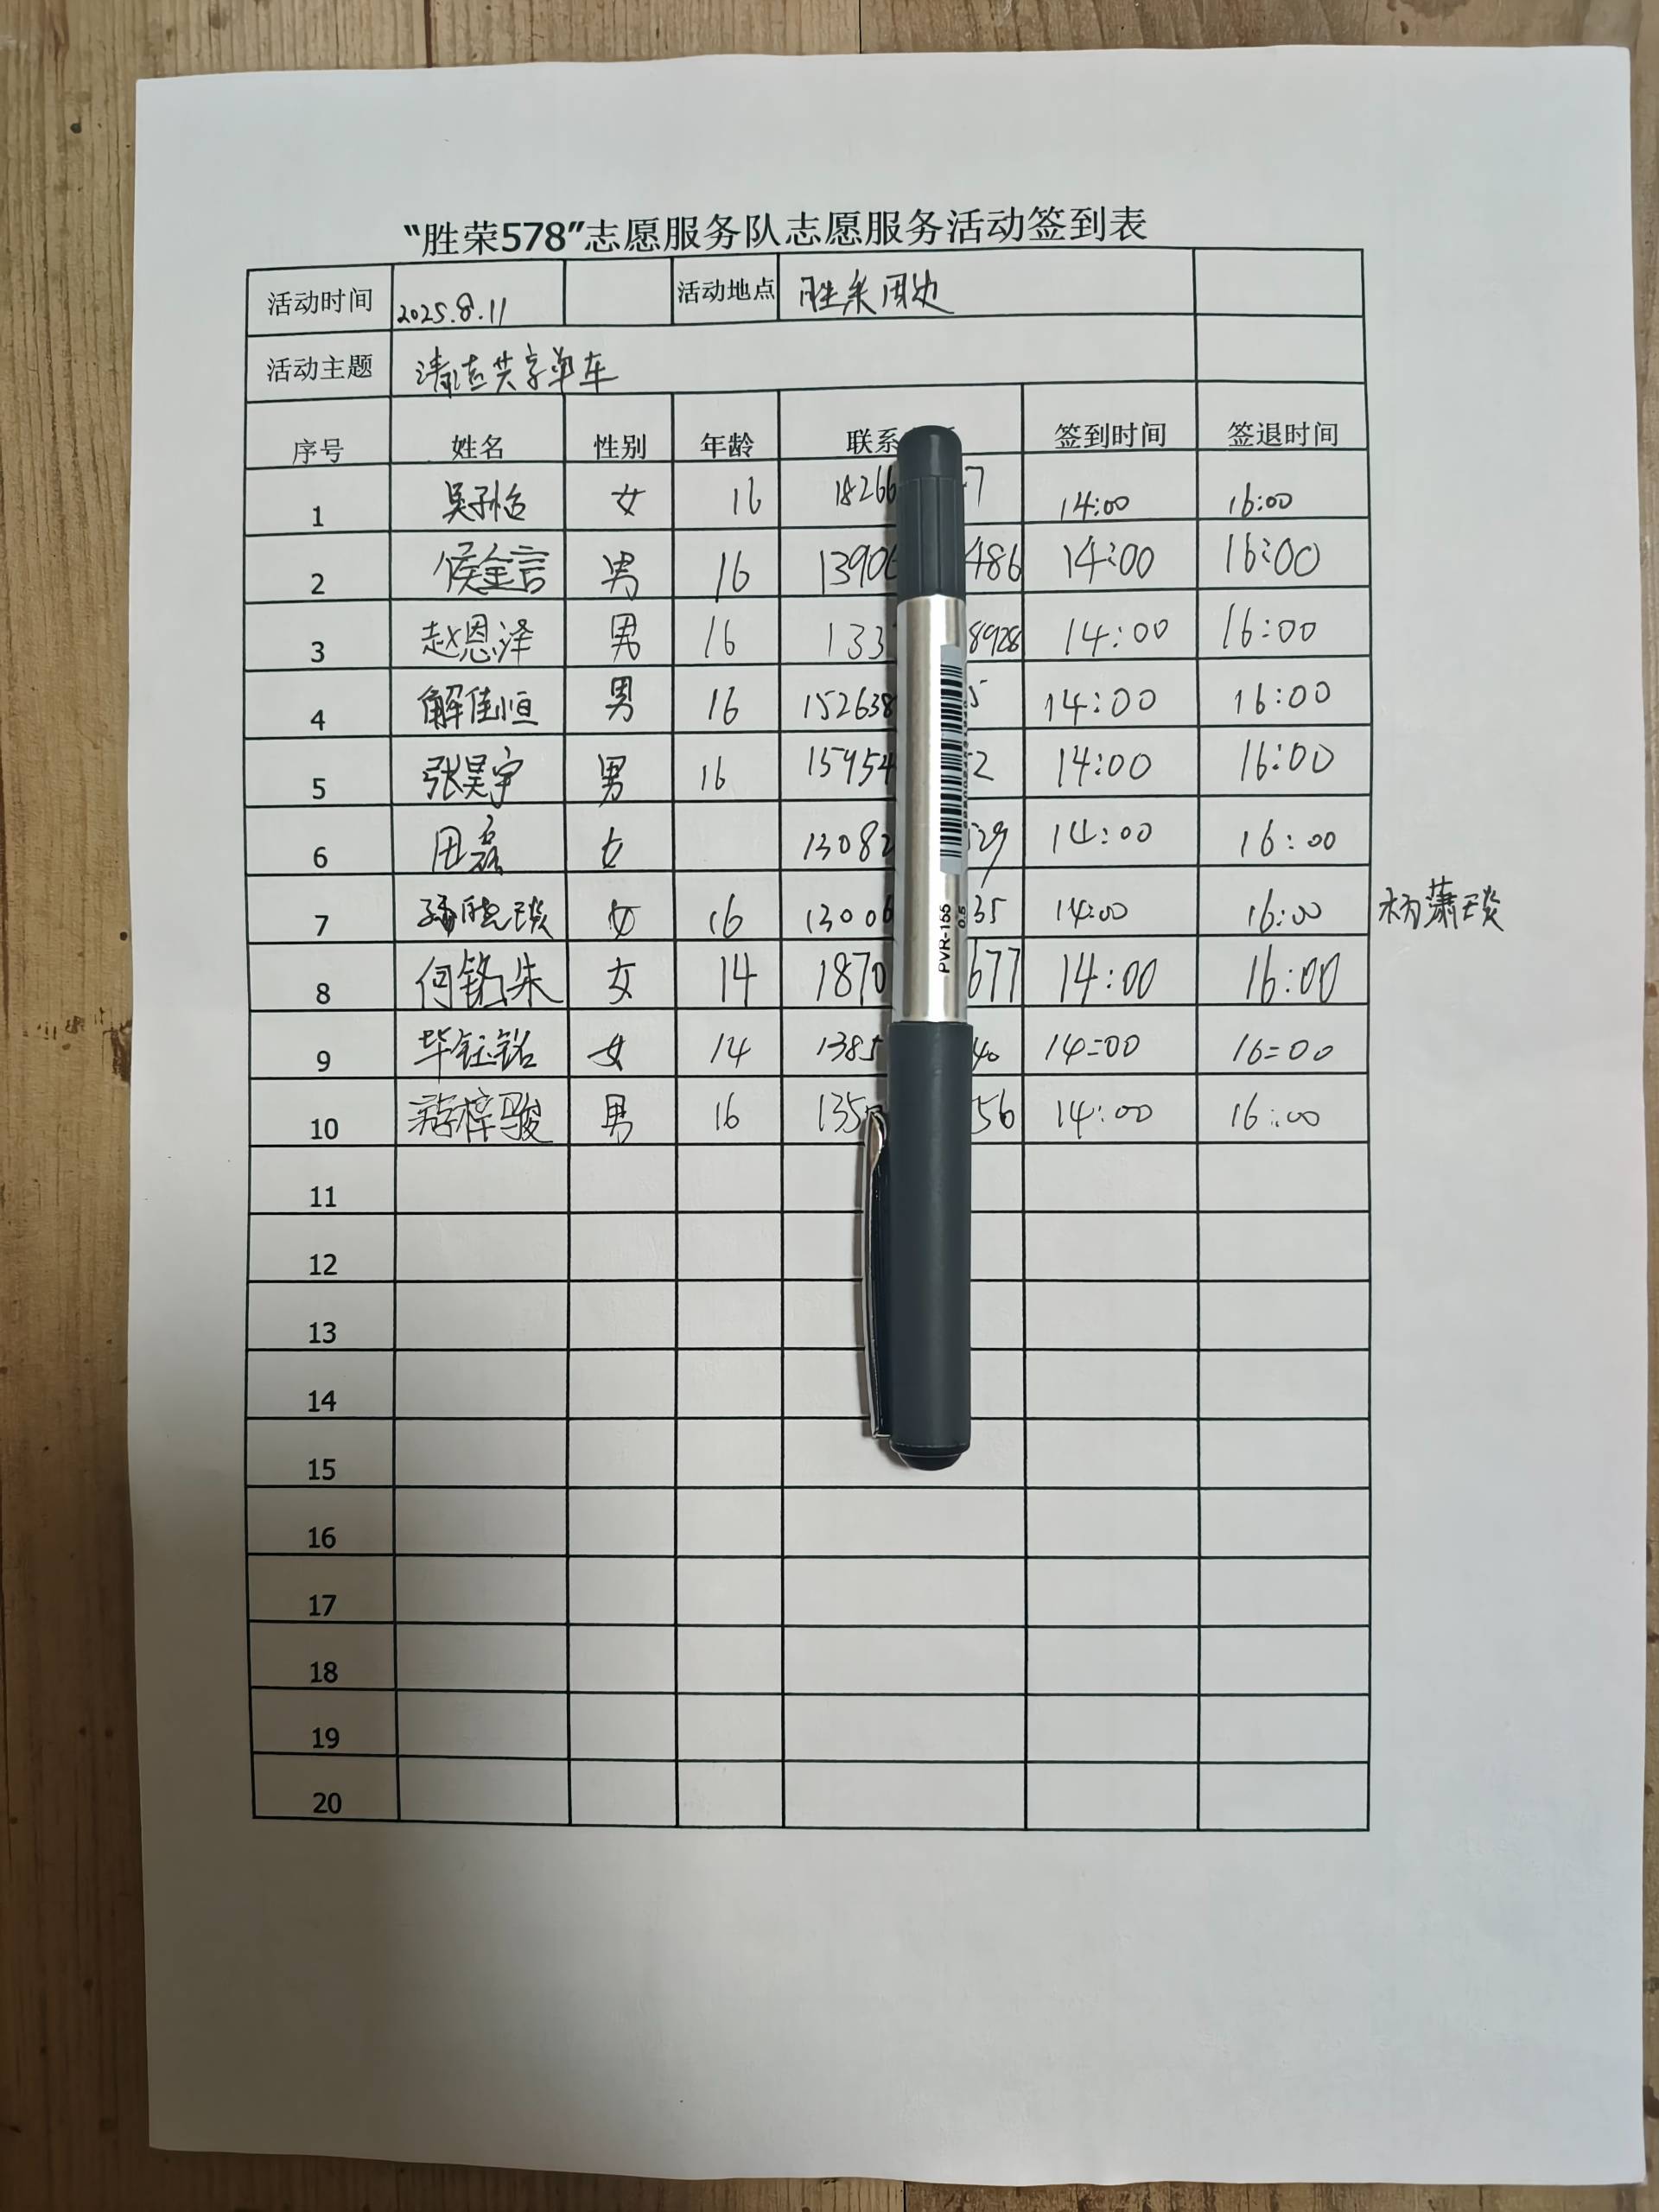 “胜荣578”志愿服务队志愿服务活动签到表
活动时间 2025.8.11 活动地点 胜采周边
活动主题 清洁共享单车
序号 姓名 性别 年龄 联系 签到时间 签退时间
1 吴子怡 女 16 18266 7 14:00 16:00
2 侯金言 男 16 1390 486 14:00 16:00
3 赵恩泽 男 16 133 8928 14:00 16:00
4 解佳恒 男 16 152638 5 14:00 16:00
5 张昊宇 男 16 15954 2 14:00 16:00
6 田磊 女 13082 29 14:00 16:00
7 女 16 13006 35 14:00 16:00 杨萧琰
8 何铭朱 女 14 1870 677 14:00 16:00
9 毕钰铭 女 14 1385 40 14:00 16:00
10 梓骏 男 16 135 56 14:00 16:00
11
12
13
14
15
16
17
18
19
20
PVR-155
0.5